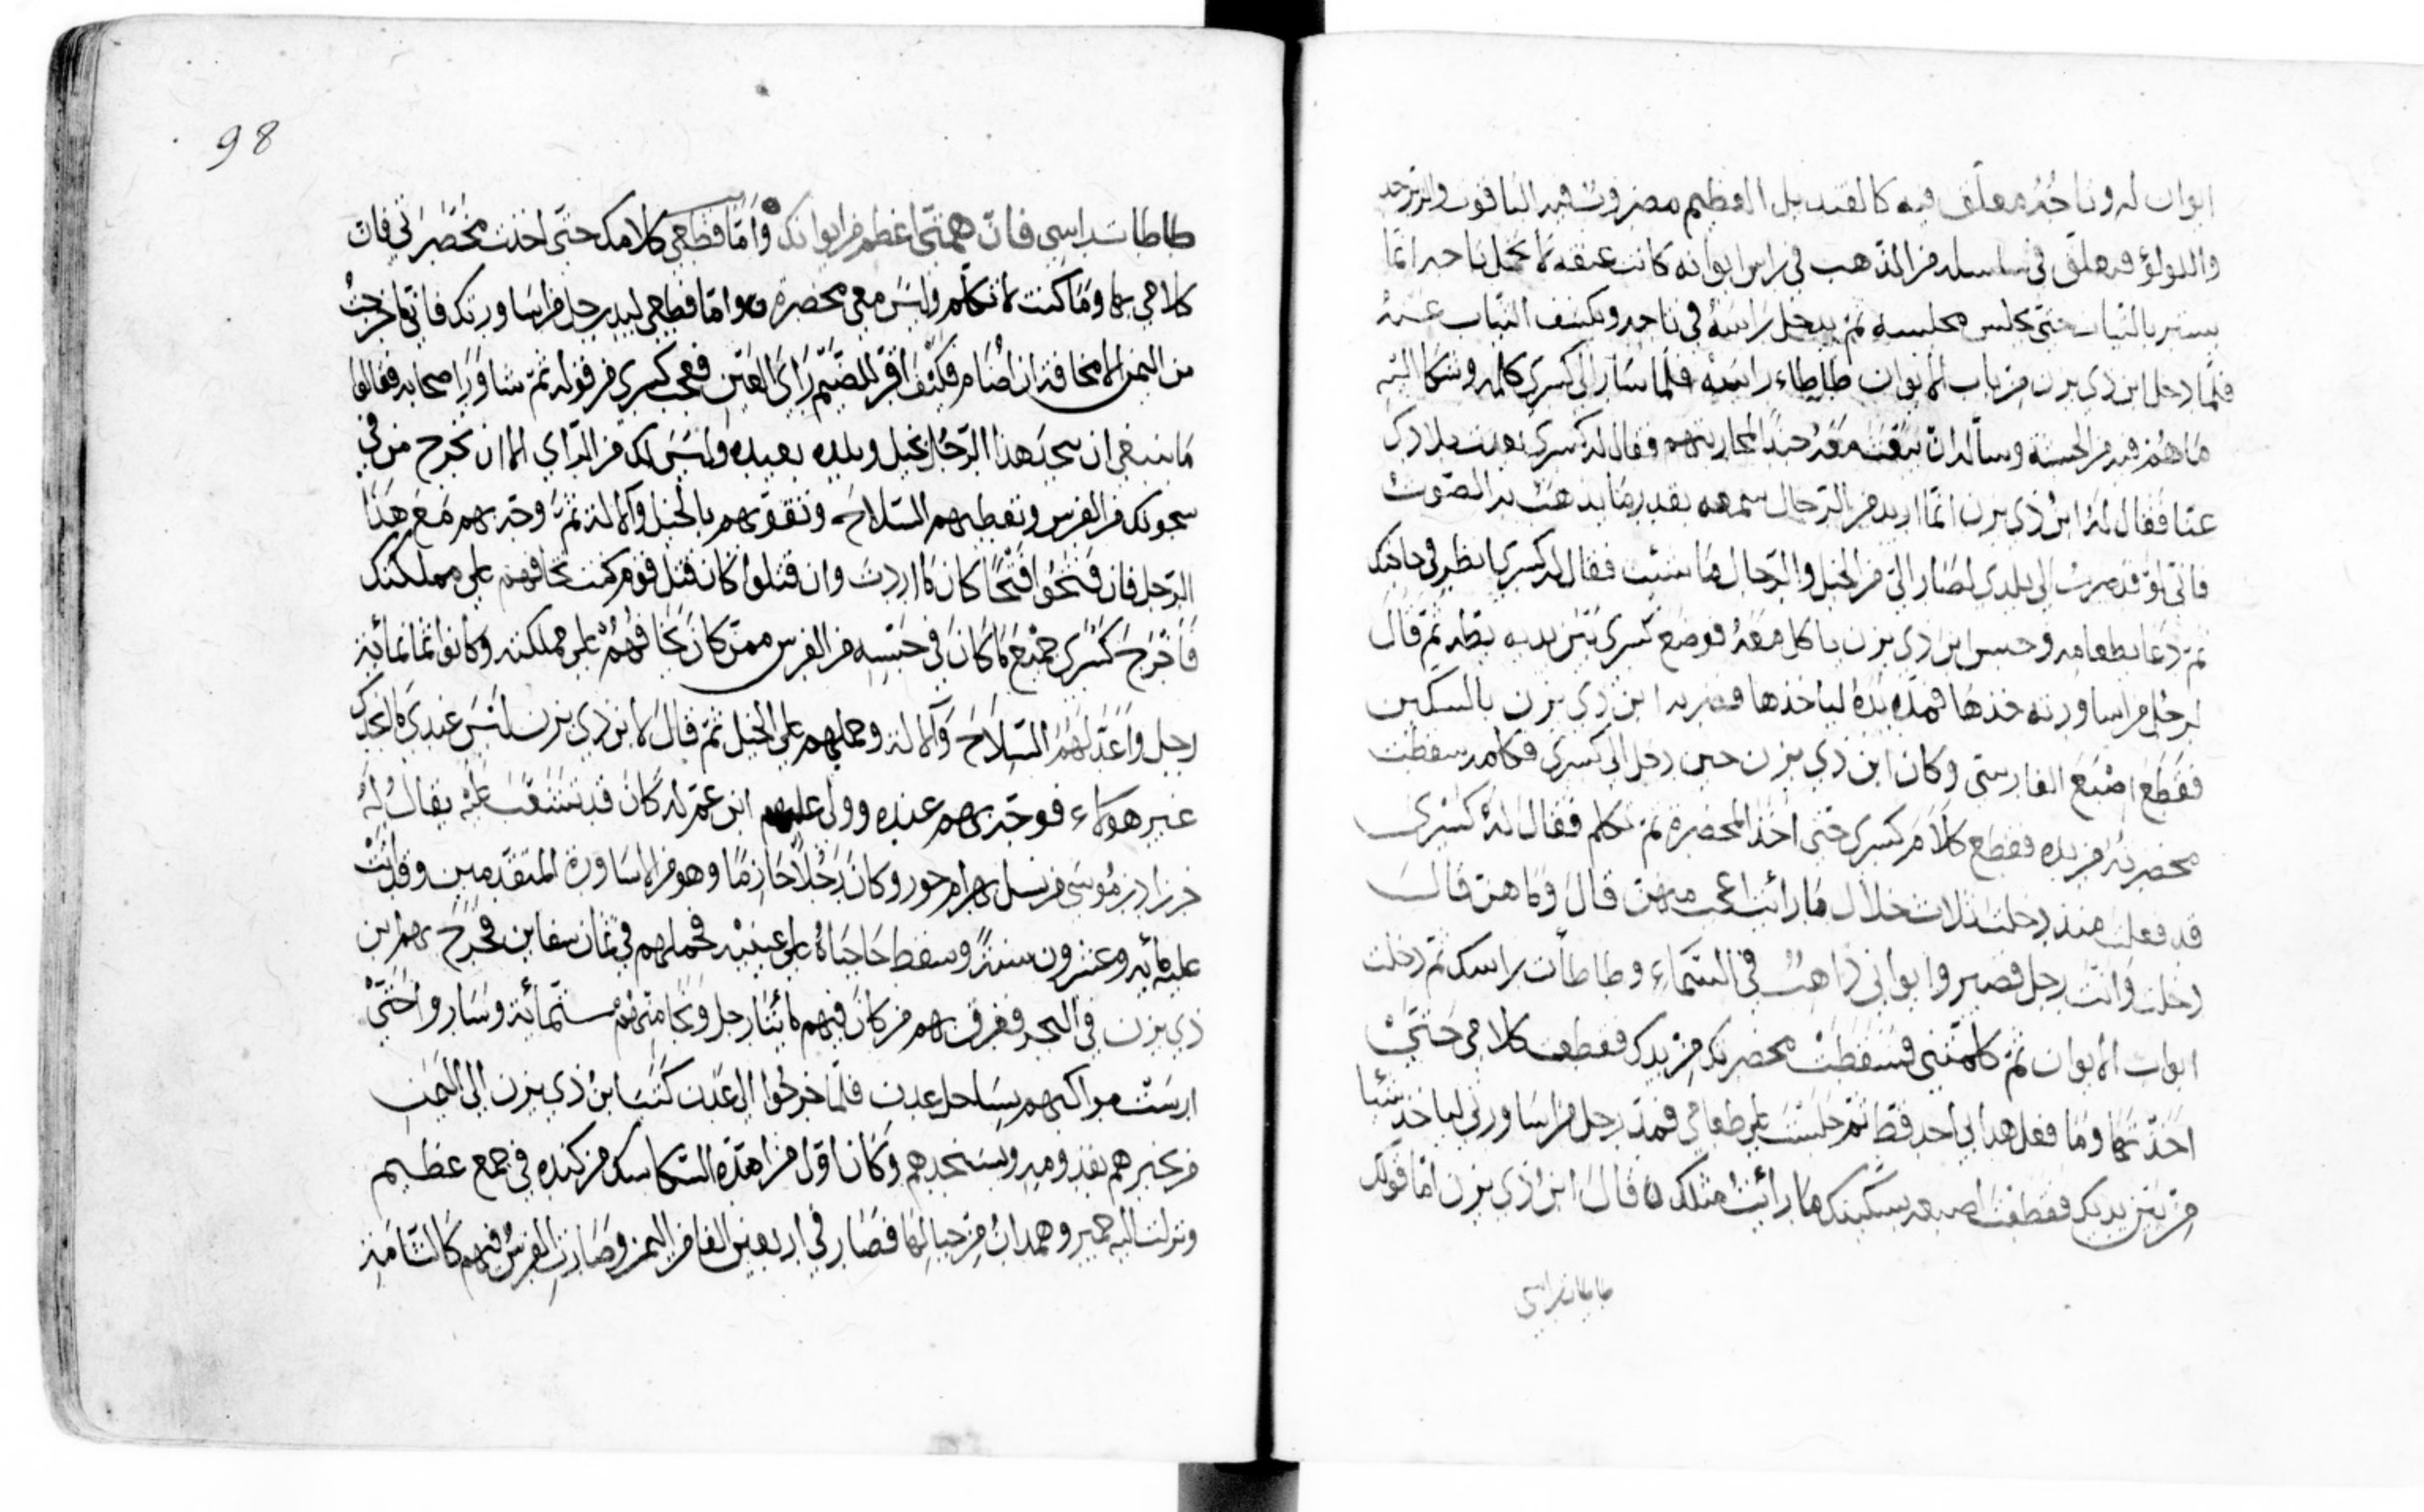 ايوان له وتاجُهُ معلّق فيه كالقنديل العظيم مضروبٌ فيه الياقوت والزبرجد
واللولؤ فيعلق في سلسله من الذهب في راس ايوانه كانت عنقه لا تحمل تاجه انما
يستر بالثياب حتى يجلس مجلسه ثم يدخل راسَهُ في تاجه ويكشف الثياب عنهُ
فلما دخل ابن ذي يزن من باب الايوان طاطاء راسَه فلما سار الى كسرى كلمه وشكا اليه
ما هُم فيه من الحبشة وساله ان يبعث معَه جندًا لمحاربتهم فقال له كسرى بعدت بلادك
عنا فقال لهُ ابنُ ذي يزن انّما اريد من الرجال سمعه بقدر ما يذهب به الصّوت
فاني لو قد صرت الى بلدي لصَار اليّ من الخيل والرّجال مَا شئت فقال له كسرى انظر في حاجتك
ثم دعَا بطعامه وحبس ابن ذي يزن ياكل معَهُ فوضع كسرى بَيْن يديه بطه ثم قال
لرجل من اساورته خذها فمدّ يدَهُ لياخذها فضربه ابن ذي يزن بالسكين
فقَطَع اصْبَع الفارسيّ وكان ابن ذي يزن حين دخل الى كسرى فكلمه سقطت
مخصرتهُ من يده فقطع كلامَ كسرى حتى اخذ المخصرة ثم تكلم فقال لهُ كَسْرى
قد فعلت منذ دخلت ثلاث خلال ما رأيت اعجب منهن قال وما هن قال
دخلت وَانت رجل قصير وايواني ذاهبٌ في السّماءِ وطاطأت براسك ثم دخلت
ابواب الايوان ثم كلمتني فسَقطتْ مخصرتك من يدك فقطعت كلامي حَتىّ
اخذتها وما فعل هذا بي احد قط ثم جلسْت على طعامي فمدّ رجل من اساورتي لياخذ شيئا
من بَين يديك فقطعت اصبعه بسكينك ما رأيتُ مثلك ه قالَ ابنُ ذي يزن امّا قولك
طاطات براسي
98
طاطات براسي فانّ همتى اعظم من ايوانك وَامّا قطعي كلامك حتّى اخذت مخصَرتي فان
كلامي بها ومَا كنت لاتكلم وليسَ معي مخصرة ه وامّا قطعي ليد رجل من اساورتك فاني ما خرجتُ
من اليمن الا مخافة ان اُضَام فكَيْفَ اقرّ للضّيم رَاي العَين فعجب كسرى من قوله ثمّ شاور اصحابه فقالوا
مَا ينبغي ان يجيَ هذا الرجُل بخيل وبلده بعيده وليسَ لك من الرّاي الا ان تخرج من في
سجونك من الفرس وتعطيهم السّلاحَ وتقويهم بالخيل والالة ثمّ توجّه بهم مَع هَذا
الرجل فان فتحُوا فتْحًا كان مَا اردت وان قتلوا كان قتل قوم كنت تخافهم على مملكتك
فَاخْرج كَسْرى جَميْع مَا كانَ في حَبْسِه من الفرس ممّن كان يخَافهُم على مملكته وكانوا ثمانمائة
رجل وَاعَدّ لهُمُ السّلاحَ وَالالة وحملهم على الخيل ثمّ قالَ لابن ذي يزن ليس عندي مَا انجدك
غير هؤلاء فوجّه بهم عنده وولى عليهم ابن عمّ له كان قد تشعّبَ عليْه يقالُ لهُ
خرزاد بن مُوسَى من نسل بهرام جور وكان رَجُلاً حَازمًا وهو من الاسَاورة المتقدّمين وقد اتتْ
عليه مأيه وعشرون سنة وسقط حَاجبَاهُ على عينيْه فحملهم في ثمان سفاين فخرج بهم ابن
ذي يزن في البحر فغرق بهم من كانَ فيهم مائتا رجل ونجَا منهم ستمائة وسَار واحَتىّ
ارسَتْ مراكبهم بسَاحل عدن فلمّا خرجُوا الى عَدن كتب ابنُ ذي يزن الى اليَمنِ
من يخبرهم بقدومه ويستنجدهم وَكانَ اوّل من امدّه السّكاسك من كنده في جمع عظيم
ونزلت اليه حمير وهمدان من جبالهَا فصَار في اربعين الفا من اليمن وصَارتِ الفرسُ فيهم كالشامَة